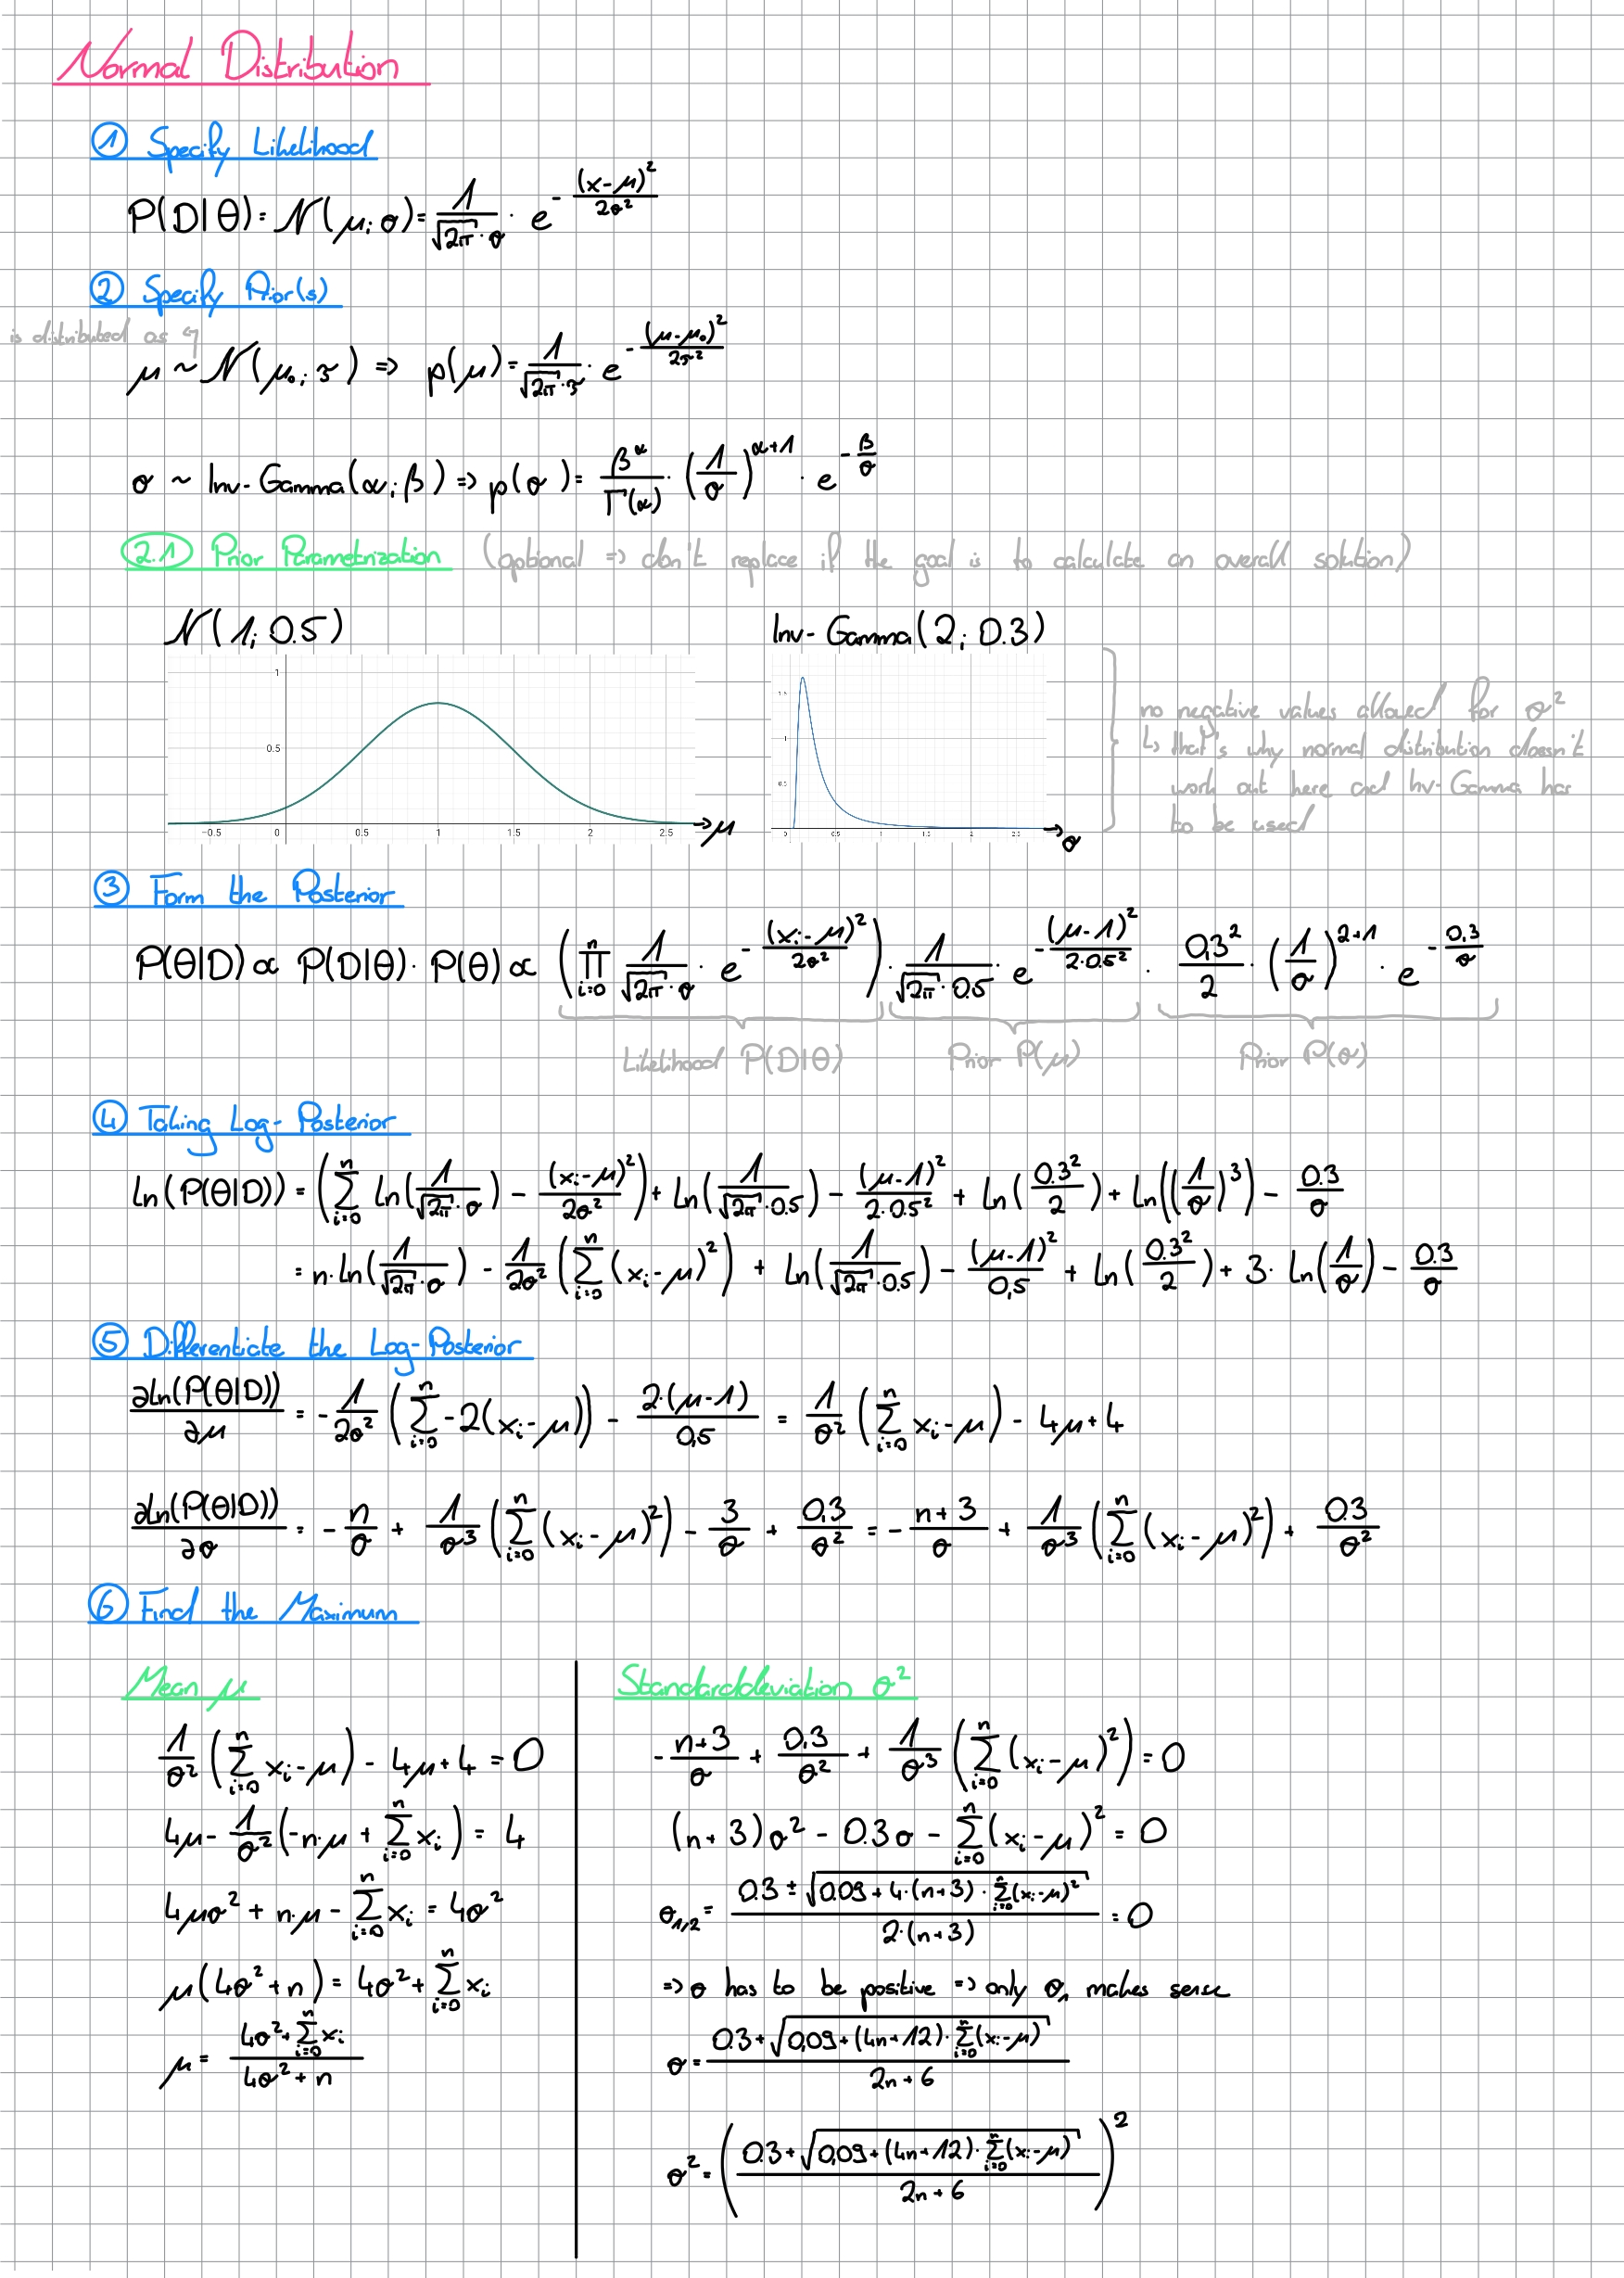 Normal Distribution
① Specify Likelihood
P(D|θ) = 𝒩(μ; σ) = 1/(√2π · σ) · e^(-(x-μ)²/(2σ²))
② Specify Prior(s)
is distributed as ↰
μ ~ 𝒩(μ₀; τ) => p(μ) = 1/(√2π · τ) · e^(-(μ-μ₀)²/(2τ²))
σ ~ Inv-Gamma(α; β) => p(σ) = β^α/Γ(α) · (1/σ)^(α+1) · e^(-β/σ)
2.1 Prior Parametrization (optional => don't replace if the goal is to calculate an overall solution)
𝒩(1; 0.5) Inv-Gamma(2; 0.3)
1
0.5
-0.5 0 0.5 1 1.5 2 2.5 → μ
1.5
1
0.5
0 0.5 1 1.5 2 2.5 → σ
no negative values allowed for σ²
↳ that's why normal distribution doesn't
work out here and Inv-Gamma has
to be used
③ Form the Posterior
P(θ|D) ∝ P(D|θ) · P(θ) ∝ (∏_{i=0}^{n} 1/(√2π · σ) · e^(-(xᵢ-μ)²/(2σ²))) · 1/(√2π · 0.5) · e^(-(μ-1)²/(2·0.5²)) · 0,3²/2 · (1/σ)^(2+1) · e^(-0.3/σ)
Likelihood P(D|θ) Prior P(μ) Prior P(σ)
④ Taking Log-Posterior
ln(P(θ|D)) = (∑_{i=0}^{n} ln(1/(√2π · σ)) - (xᵢ-μ)²/(2σ²)) + ln(1/(√2π · 0.5)) - (μ-1)²/(2·0.5²) + ln(0.3²/2) + ln((1/σ)³) - 0.3/σ
= n · ln(1/(√2π · σ)) - 1/(2σ²) (∑_{i=0}^{n} (xᵢ-μ)²) + ln(1/(√2π · 0.5)) - (μ-1)²/0,5 + ln(0.3²/2) + 3 · ln(1/σ) - 0.3/σ
⑤ Differentiate the Log-Posterior
∂ln(P(θ|D))/∂μ = -1/(2σ²) (∑_{i=0}^{n} -2(xᵢ-μ)) - 2·(μ-1)/0,5 = 1/σ² (∑_{i=0}^{n} xᵢ-μ) - 4μ+4
∂ln(P(θ|D))/∂σ = -n/σ + 1/σ³ (∑_{i=0}^{n} (xᵢ-μ)²) - 3/σ + 0.3/σ² = -(n+3)/σ + 1/σ³ (∑_{i=0}^{n} (xᵢ-μ)²) + 0.3/σ²
⑥ Find the Maximum
Mean μ
1/σ² (∑_{i=0}^{n} xᵢ-μ) - 4μ+4 = 0
4μ - 1/σ² (-n·μ + ∑_{i=0}^{n} xᵢ) = 4
4μσ² + n·μ - ∑_{i=0}^{n} xᵢ = 4σ²
μ(4σ²+n) = 4σ² + ∑_{i=0}^{n} xᵢ
μ = (4σ² + ∑_{i=0}^{n} xᵢ)/(4σ²+n)
Standarddeviation σ²
-(n+3)/σ + 0.3/σ² + 1/σ³ (∑_{i=0}^{n} (xᵢ-μ)²) = 0
(n+3)σ² - 0.3σ - ∑_{i=0}^{n} (xᵢ-μ)² = 0
σ₁/₂ = (0.3 ± √(0.09 + 4·(n+3) · ∑_{i=0}^{n} (xᵢ-μ)²))/(2·(n+3)) = 0
=> σ has to be positive => only σ₁ makes sense
σ = (0.3 + √(0,09 + (4n+12) · ∑_{i=0}^{n} (xᵢ-μ)))/(2n+6)
σ² = ((0.3 + √(0,09 + (4n+12) · ∑_{i=0}^{n} (xᵢ-μ)))/(2n+6))²